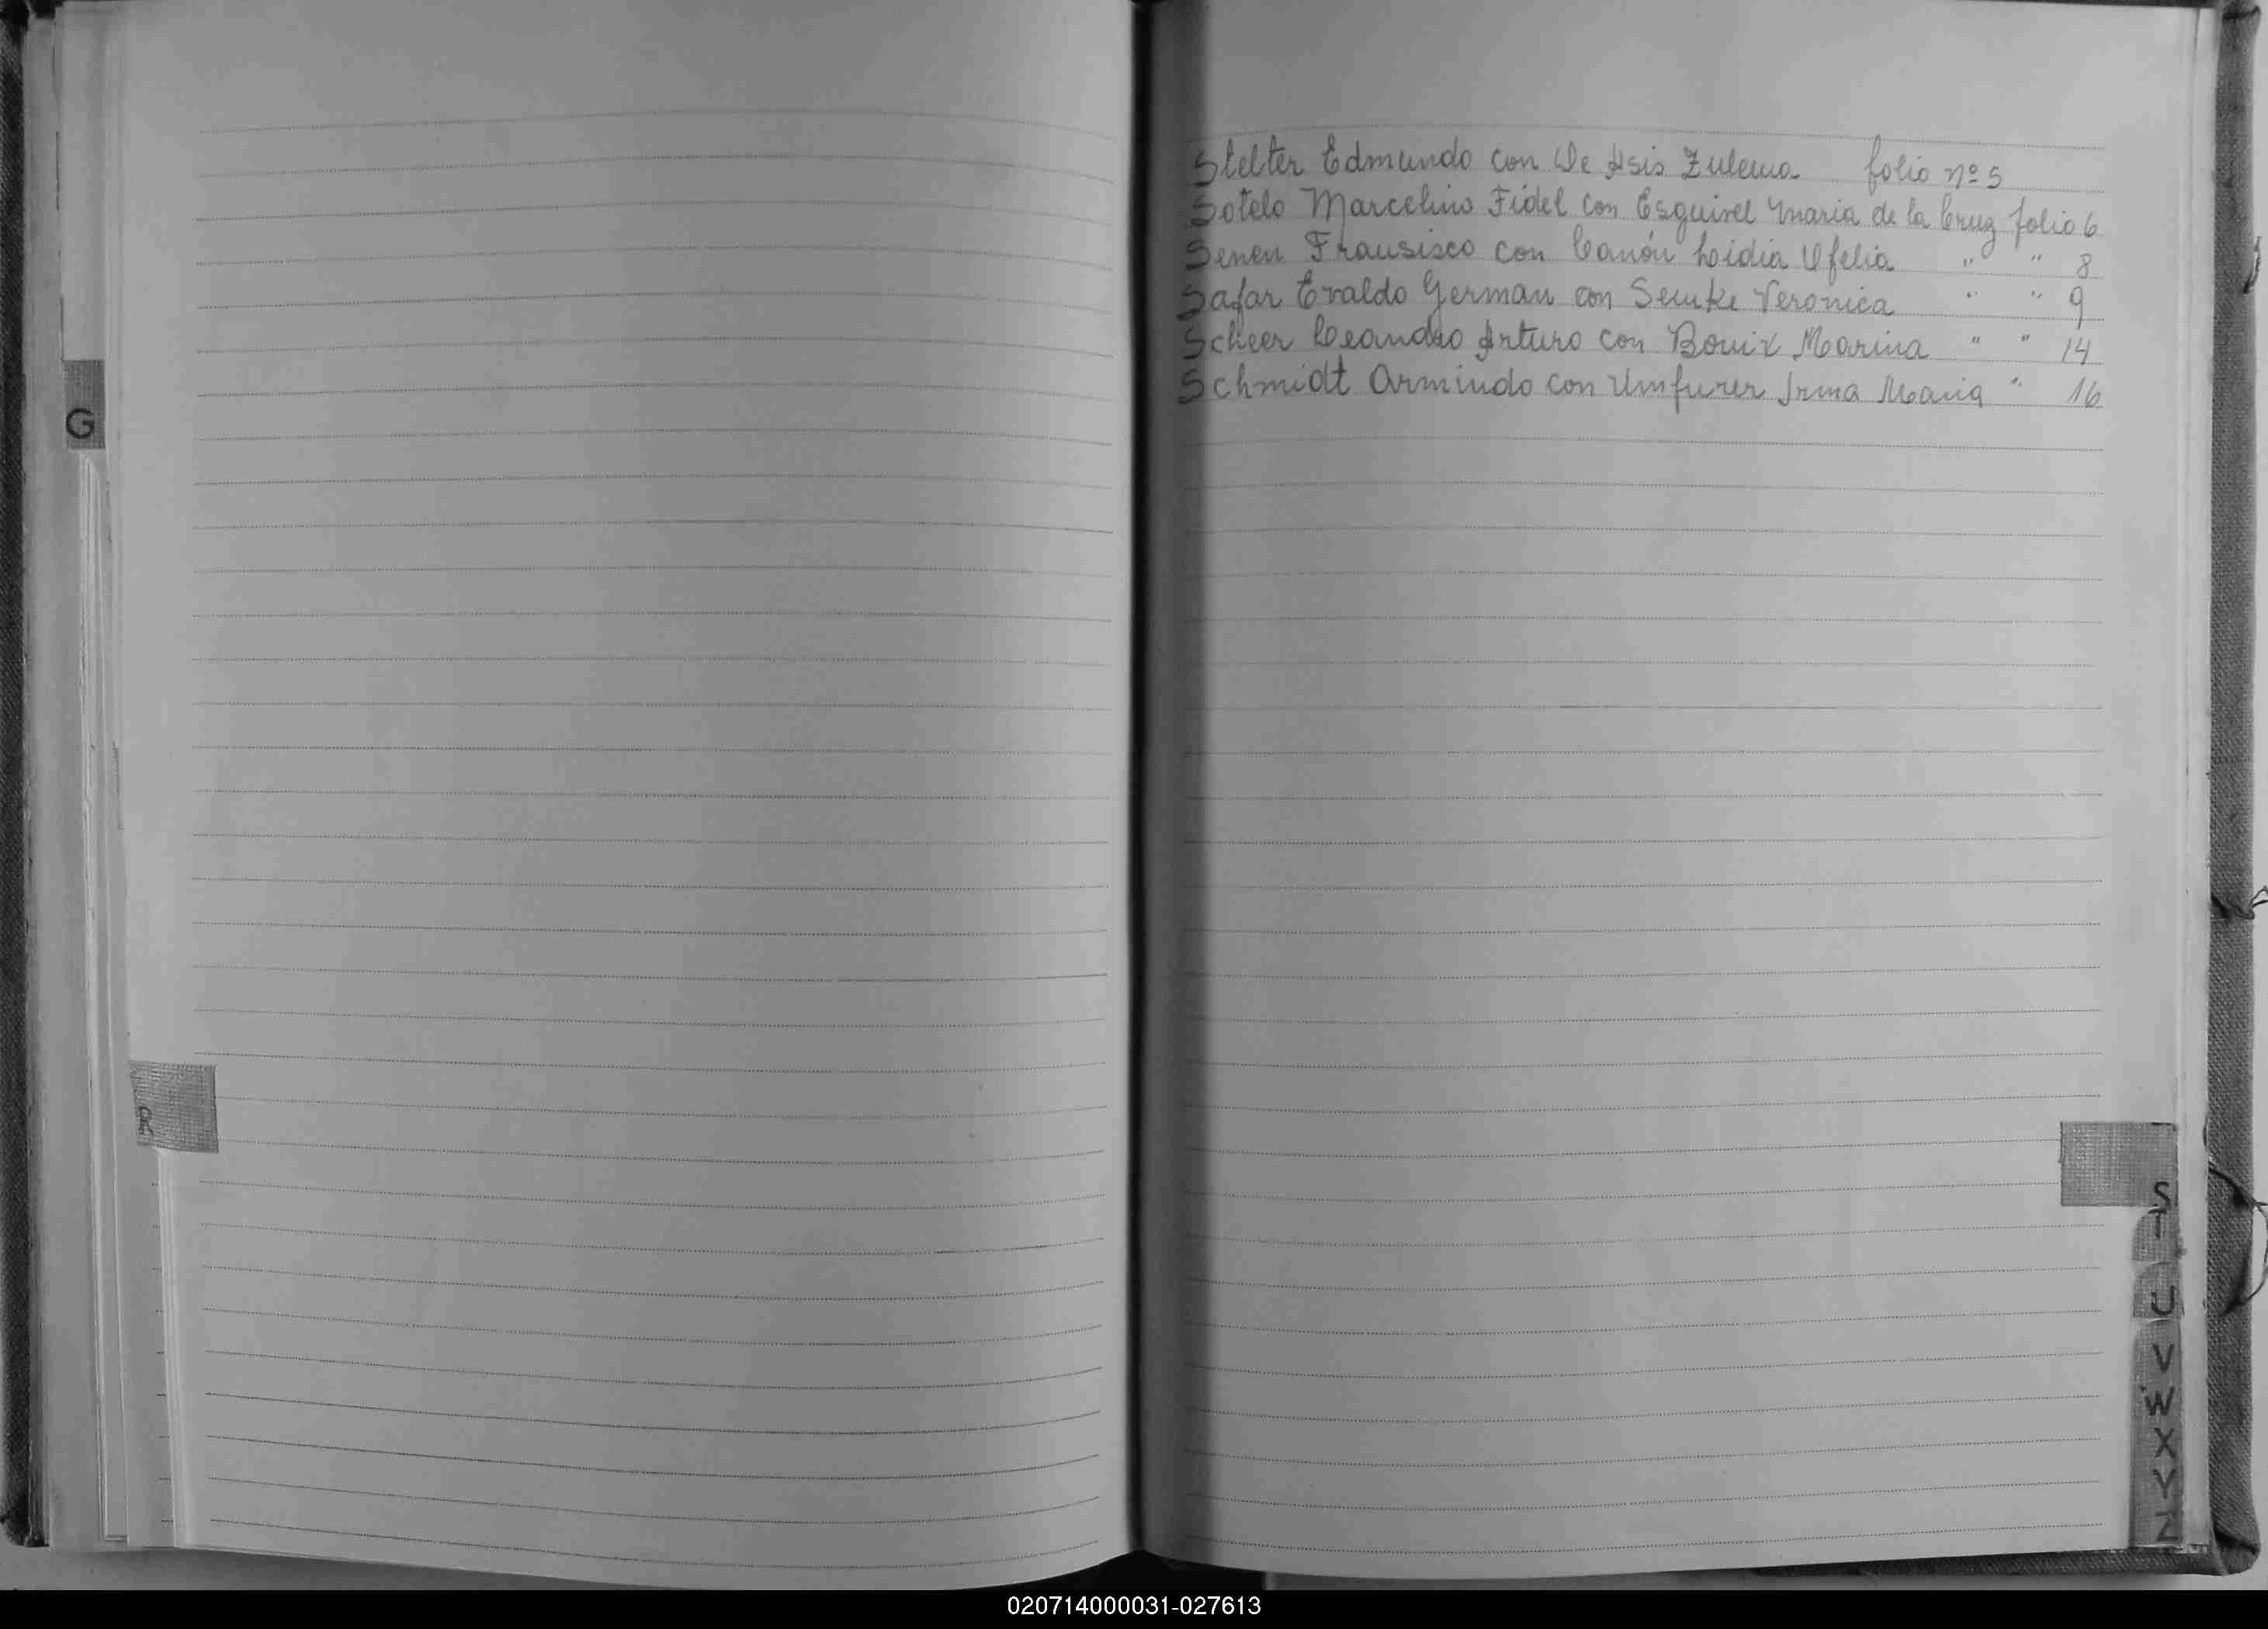 G
R
Stelter Edmundo con De Asis Zulema folio nº 5
Sotelo Marcelino Fidel con Esquivel Maria de la Cruz folio 6
Senen Fransisco con Canón Lidia Ofelia " " 8
Safar Evaldo German con Semke Veronica " " 9
Scheer Leandro Arturo con Bouix Marina " " 14
Schmidt Armindo con Umfurer Irma Maria " 16
S
T
U
V
W
X
Y
Z
020714000031-027613